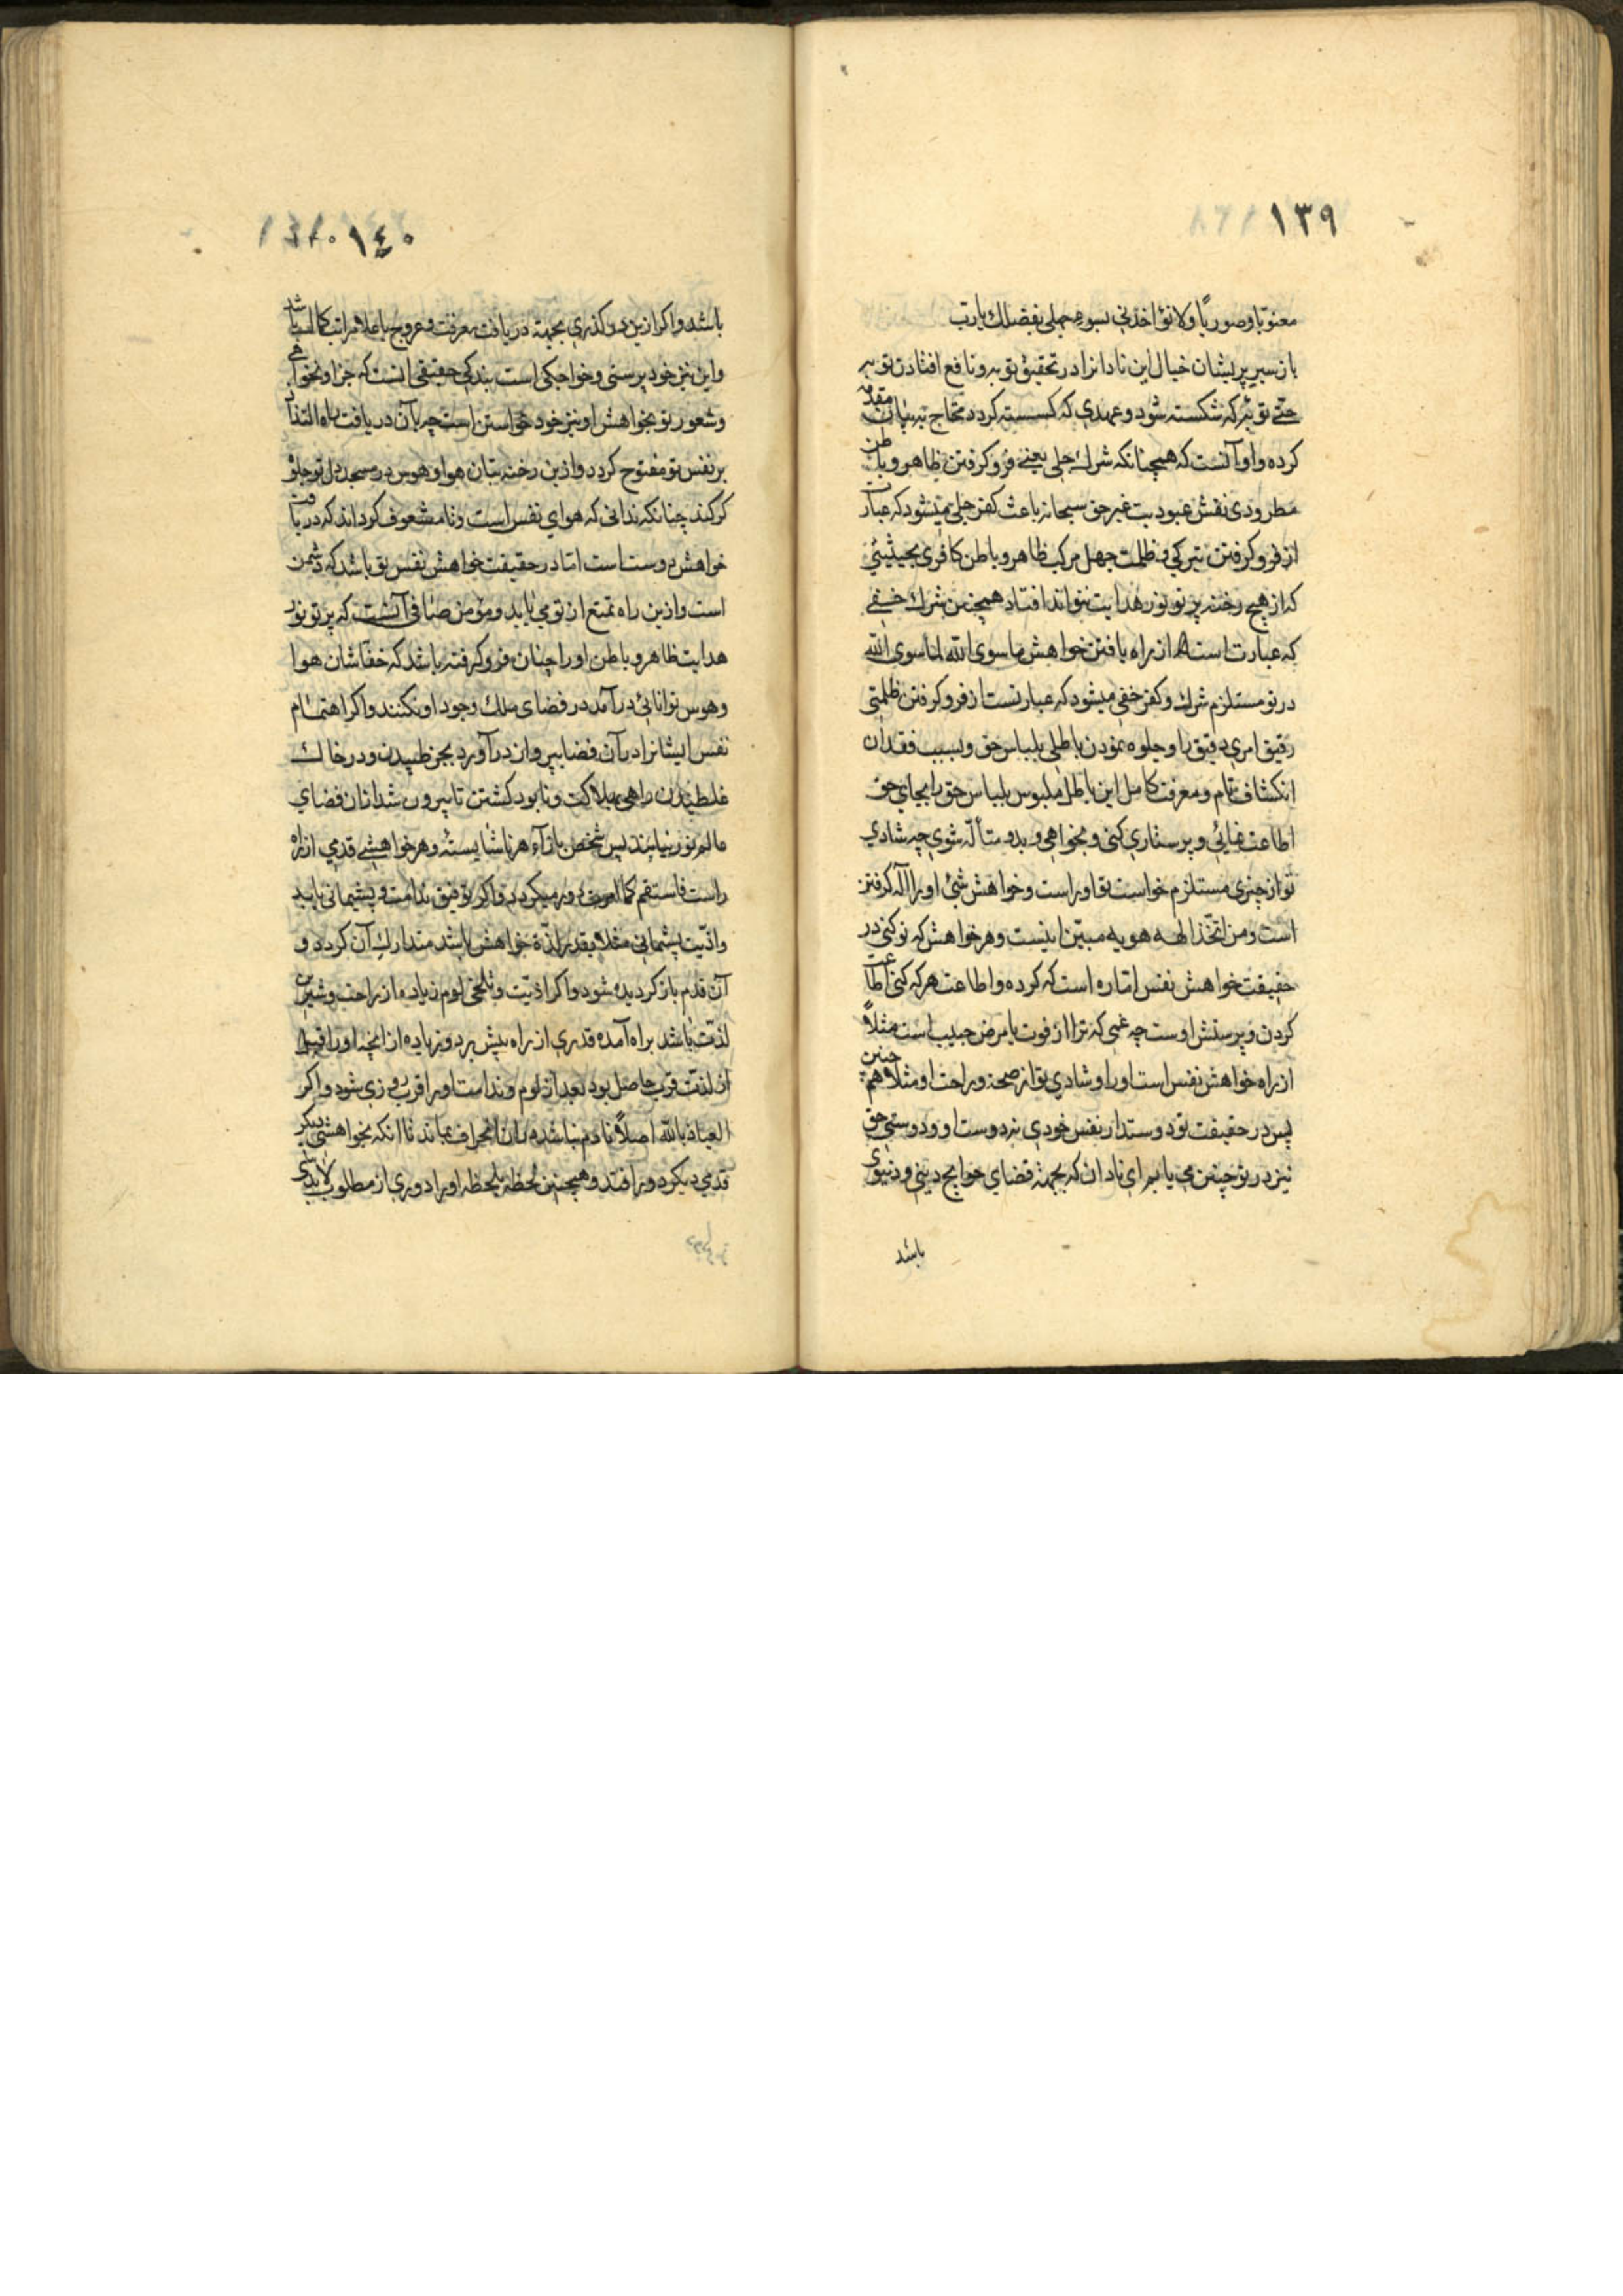 ١٣٩
معنویا و صوریا ولا تؤاخذنی بسوء عملی بفضلك یارب
باز سیر پریشان خیال این نادانرا در تحقیق توبه و نافع افتادن توبه
حتی توبۀ که شکسته شود و عهدی که کسسته کردد محتاج به بیان مقدمه
کرده و او آنست که همچنانکه شرك جلی یعنی فرو کرفتن ظاهر و باطن
مطرودی نقش عبودیت غیر حق سبحانه باعث کفر جلی میشود که عبارت
از فرو کرفتن تیرکی و ظلمت جهل مرکب ظاهر و باطن کافری بحیثیتی
که از هیچ رخنه پرتو نور هدایت نتواند افتاد همچنین شرك خفی
که عبارت است از راه یافتن خواهش ماسوی الله اناسوی الله
در تو مستلزم شرك و کفر خفی میشود که عبارتست از فرو کرفتن ظلمتی
رقیق امری دقیق را و جلوه نمودن باطلی بلباس حق و بسبب فقدان
انکشاف تام و معرفت کامل این باطل ملبوس بلباس حق را بجای حق
اطاعت نمائی و پرستاری کنی و بخواهی و بدو متألّه شوی چه شادی
تو از چیزی مستلزم خواست تو اوراست و خواهش شیٔ او را اله کرفتن
است و من اتخذ الهه هویه مبین اینست و هر خواهش که تو کنی در
حقیقت خواهش نفس اماره است که کرده و اطاعت هر که کنی اطاعت
کردن و پرستش اوست چه غمی که ترا از فوت یا مرض حبیب است مثلاً
از راه خواهش نفس است او را و شادی تو از صحت و راحت او مثلا همچنین
پس در حقیقت تو دوستدار نفس خودی نه دوست او و دوستی حق
نیز در تو چنین می یابم ای نادان که بجهة قضای حوایج دینی و دنیوی
باشد
١٤٠
باشد و اکر ازین دو کذری بجهة دریافت معرفت و عروج باعلا مراتب کمالی باشد
و این نیز خود پرستی و خواجکی است بندکی حقیقی انست که جز او نخواهی
و شعور تو بخواهش او نیز خود خواستن است چه بآن دریافت راه التذاذ
بر نفس تو مفتوح کردد و ازین رخنه بتان هوا و هوس در مسجد دل تو جلوه
کر کند چنانکه ندانی که هوای نفس است و نا مشعوف کرداند که دریافت
خواهش دوست است اما در حقیقت خواهش نفس تو باشد که دشمن
است و ازین راه تمتع از تو می یابد و مؤمن صافی آنست که پرتو نور
هدایت ظاهر و باطن او را چنان فرو کرفته باشد که خفاشان هوا
و هوس توانائی درآمد در فضای ملك وجود او نکنند و اکر اهتمام
نفس ایشانرا در آن فضا بپرواز درآورد بجز طپیدن و در خاك
غلطیدن راهی بهلاکت و نابود کشتن تا بیرون شدن از ان فضای
عالم نور نیابند پس شخص بازآء هر ناشایستۀ و هر خواهشی قدمی از راه
راست فاستقم کما امرت دور میکردد و اکر توفیق ندامت و پشیمانی یابد
و اذیت پشیمانی مثلا بقدر لذة خواهش باشد متدارك آن کردد و
آن قدم باز کردیده شود و اکر اذیت و تلخی لوم زیاده از راحت و شیرین
لذت باشد براه آمده قدری از راه پیش برد و زیاده از انچه او را قبل
از لذت قرب حاصل بود بعد از لوم و ندامت او را قرب روزی شود و اکر
العیاذ بالله اصلاً نادم نباشد بآن انحراف بماند تا انکه بخواهشی دیکر
قدمی دیکر دورافتد و همچنین لحظه بلحظه او را دوری از مطلوب